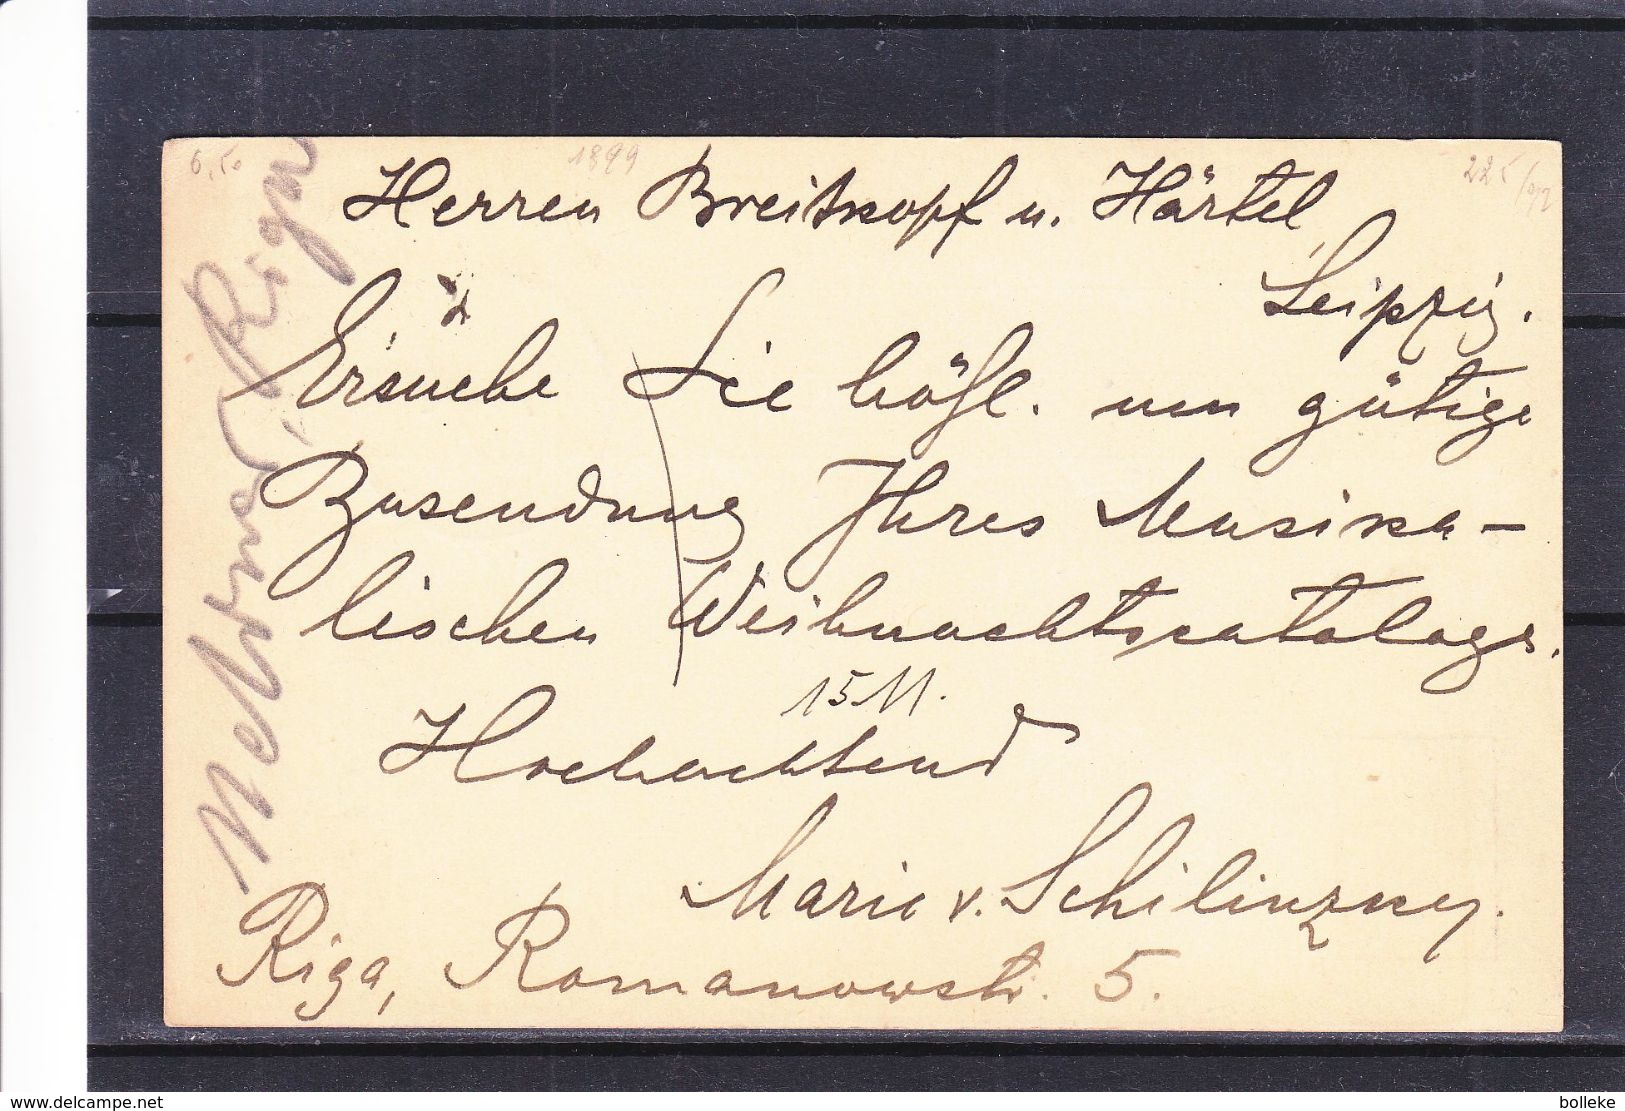 6,50
1899
225
Herren Breitkopf u. Härtel,
Leipzig.
Ersuche Sie höfl. um gütige
Zusendung Ihres Musika-
lischen Weihnachtscatalogs.
15 M.
Hochachtend
Marie v. Schilinzky.
Riga, Romanowstr. 5.
Riga
www.delcampe.net
bolleke